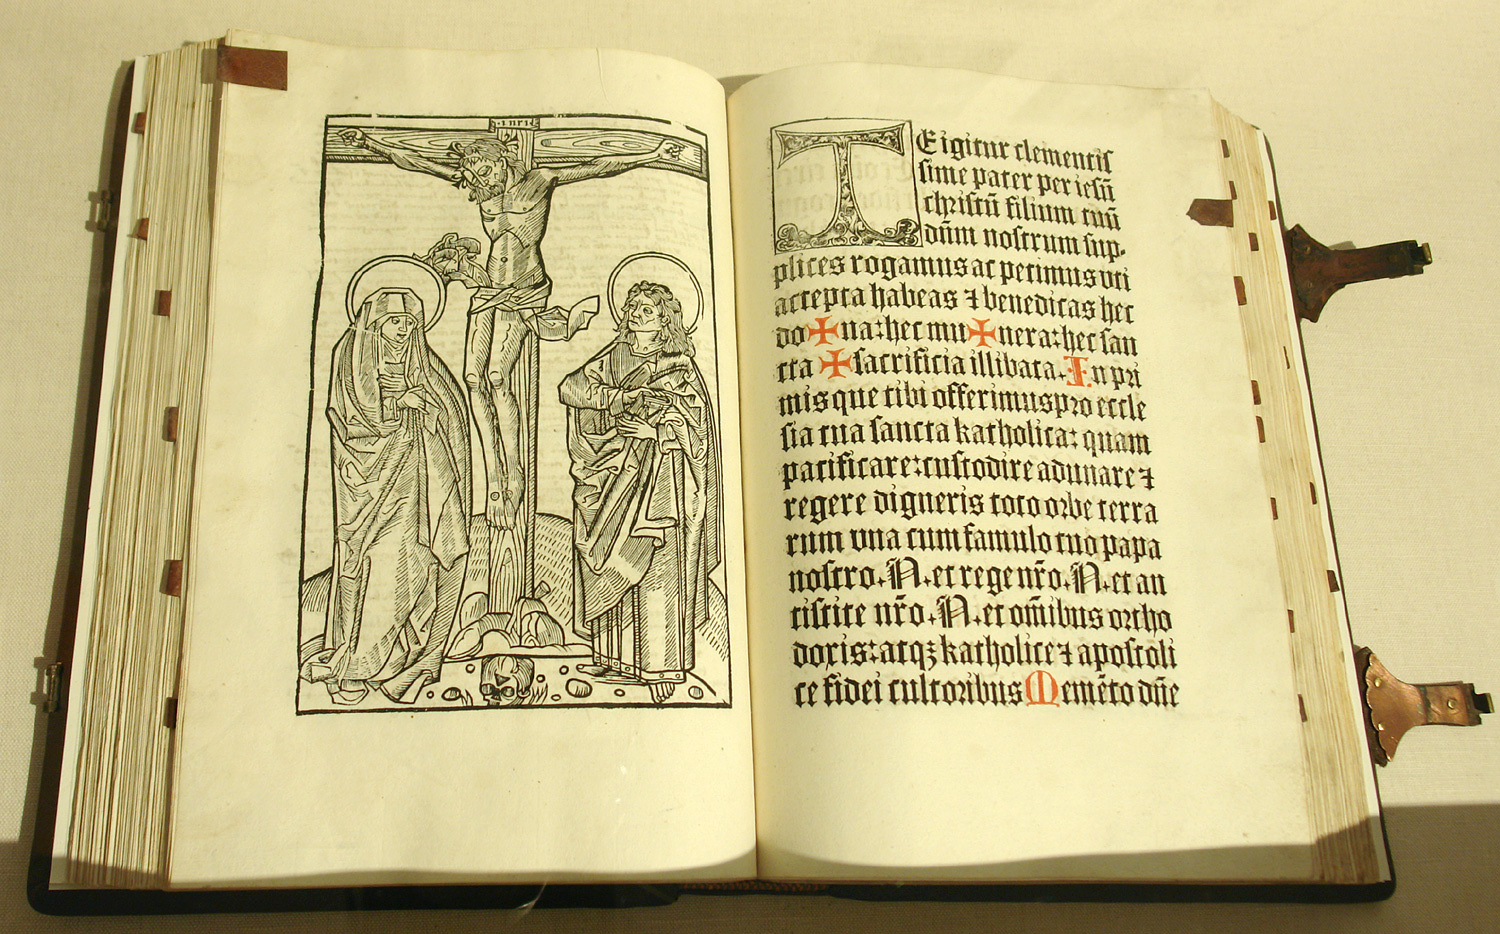 inri
TEigitur clementis
sime pater per iesū
christū filium tuū
dn̄m nostrum sup-
plices rogamus ac petimus vti
accepta habeas ⁊ benedicas hec
do✠na: hec mu✠nera: hec san
cta ✠ sacrificia illibata. In pri
mis que tibi offerimus pro eccle
sia tua sancta katholica: quam
pacificare: custodire adunare ⁊
regere digneris toto orbe terra
rum vna cum famulo tuo papa
nostro .N. et rege nr̄o .N. et an
tistite nr̄o .N. et om̄ibus ortho
doxis: atqꝫ katholice ⁊ apostoli
ce fidei cultoribus Memēto dn̄e